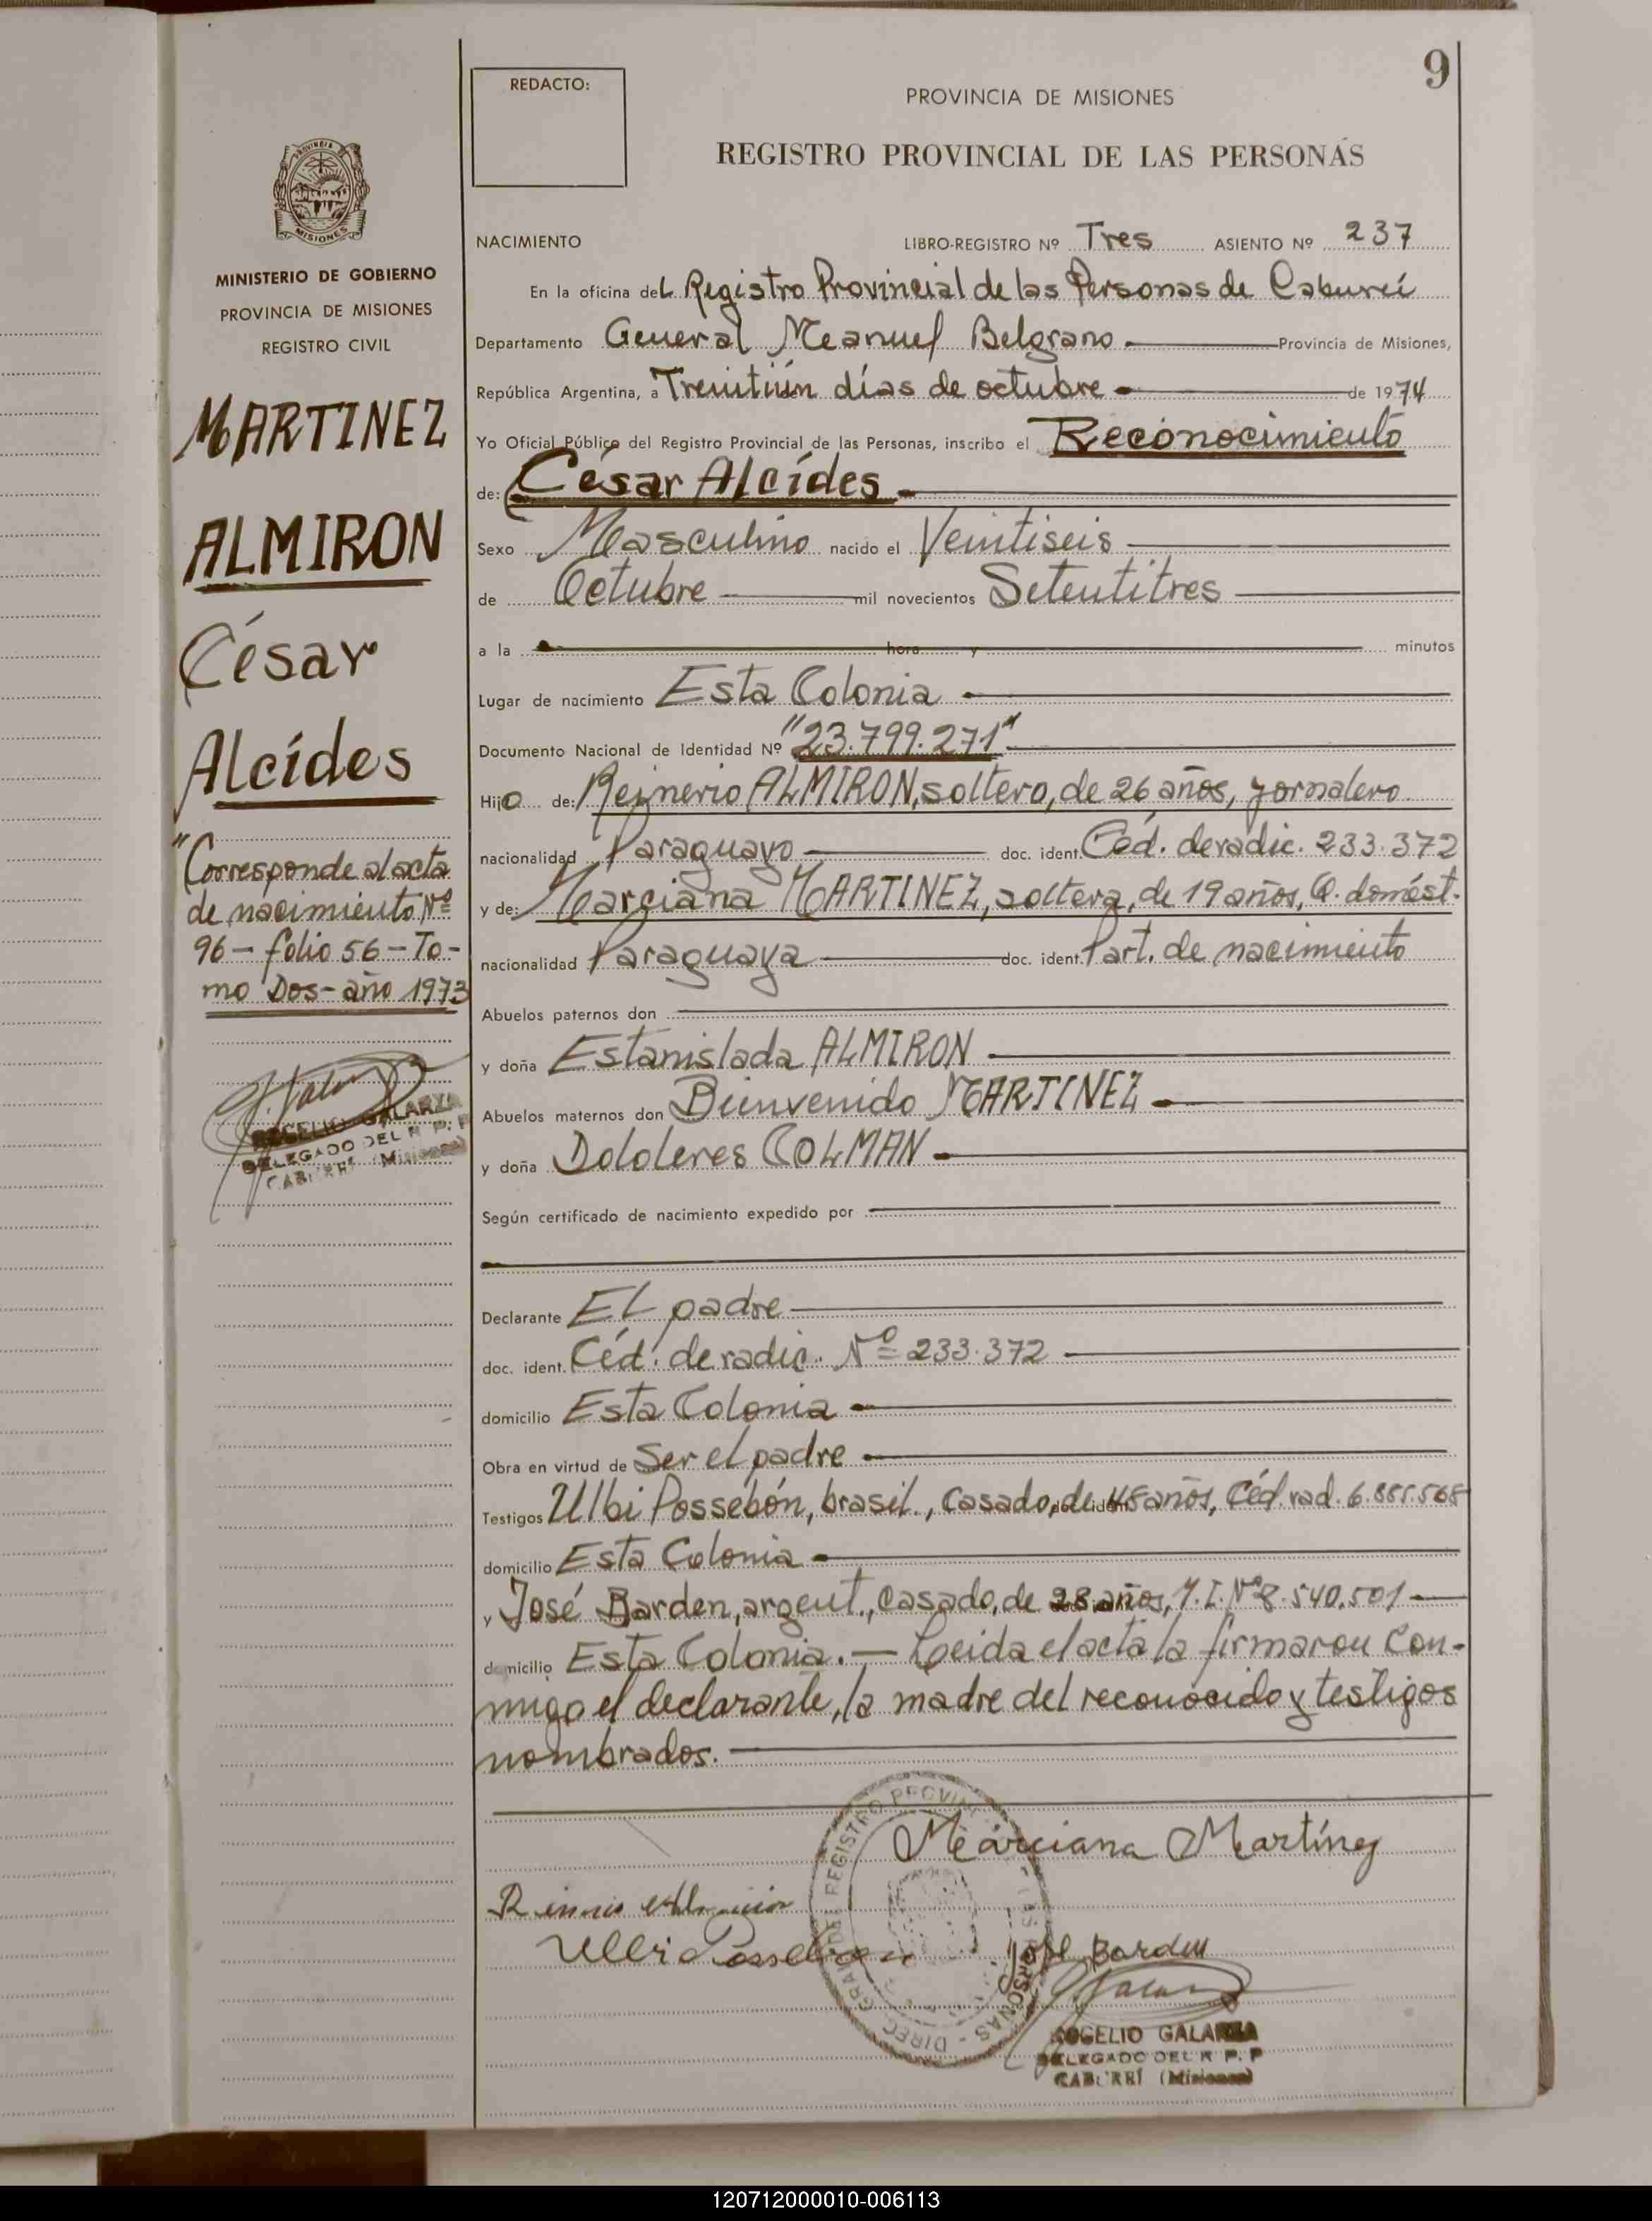 9
REDACTO:
PROVINCIA DE MISIONES
REGISTRO PROVINCIAL DE LAS PERSONAS
PROVINCIA DE MISIONES
MINISTERIO DE GOBIERNO
PROVINCIA DE MISIONES
REGISTRO CIVIL
MARTINEZ
ALMIRON
César
Alcídes
"Corresponde al acta
de nacimiento Nº
96 - folio 56 - To-
mo Dos - año 1973
ROGELIO GALARZA
DELEGADO DEL R. P. P
CABUREÍ (Misiones)
NACIMIENTO LIBRO-REGISTRO Nº Tres ASIENTO Nº 237
En la oficina del Registro Provincial de las Personas de Cabureí
Departamento General Manuel Belgrano Provincia de Misiones,
República Argentina, a Treintiún días de octubre de 1974
Yo Oficial Público del Registro Provincial de las Personas, inscribo el Reconocimiento
de: César Alcídes
Sexo Masculino nacido el Veintiseis
de Octubre mil novecientos Setentitres
a la hora y minutos
Lugar de nacimiento Esta Colonia
Documento Nacional de Identidad Nº "23.799.271"
Hijo de: Reinerio ALMIRON, soltero, de 26 años, jornalero
nacionalidad Paraguayo doc. ident. Céd. de radic. 233.372
y de: Marciana MARTINEZ, soltera, de 19 años, Q. domést.
nacionalidad Paraguaya doc. ident. Part. de nacimiento
Abuelos paternos don
y doña Estanislada ALMIRON
Abuelos maternos don Bienvenido MARTINEZ
y doña Dololeres COLMAN
Según certificado de nacimiento expedido por
Declarante El padre
doc. ident. Céd. de radic. Nº 233.372
domicilio Esta Colonia
Obra en virtud de Ser el padre
Testigos Ulbi Possebón, brasil., casado, de 48 años, Céd. rad.
domicilio Esta Colonia
y José Barden, argent., casado, de 28 años, M.I. Nº 8.540.501
domicilio Esta Colonia. — Leida el acta la firmaron con-
migo el declarante, la madre del reconocido y testigos
nombrados.
Marciana Martínez
José Barden
ROGELIO GALARZA
DELEGADO DEL R P. P
CABUREÍ (Misiones)
120712000010-006113